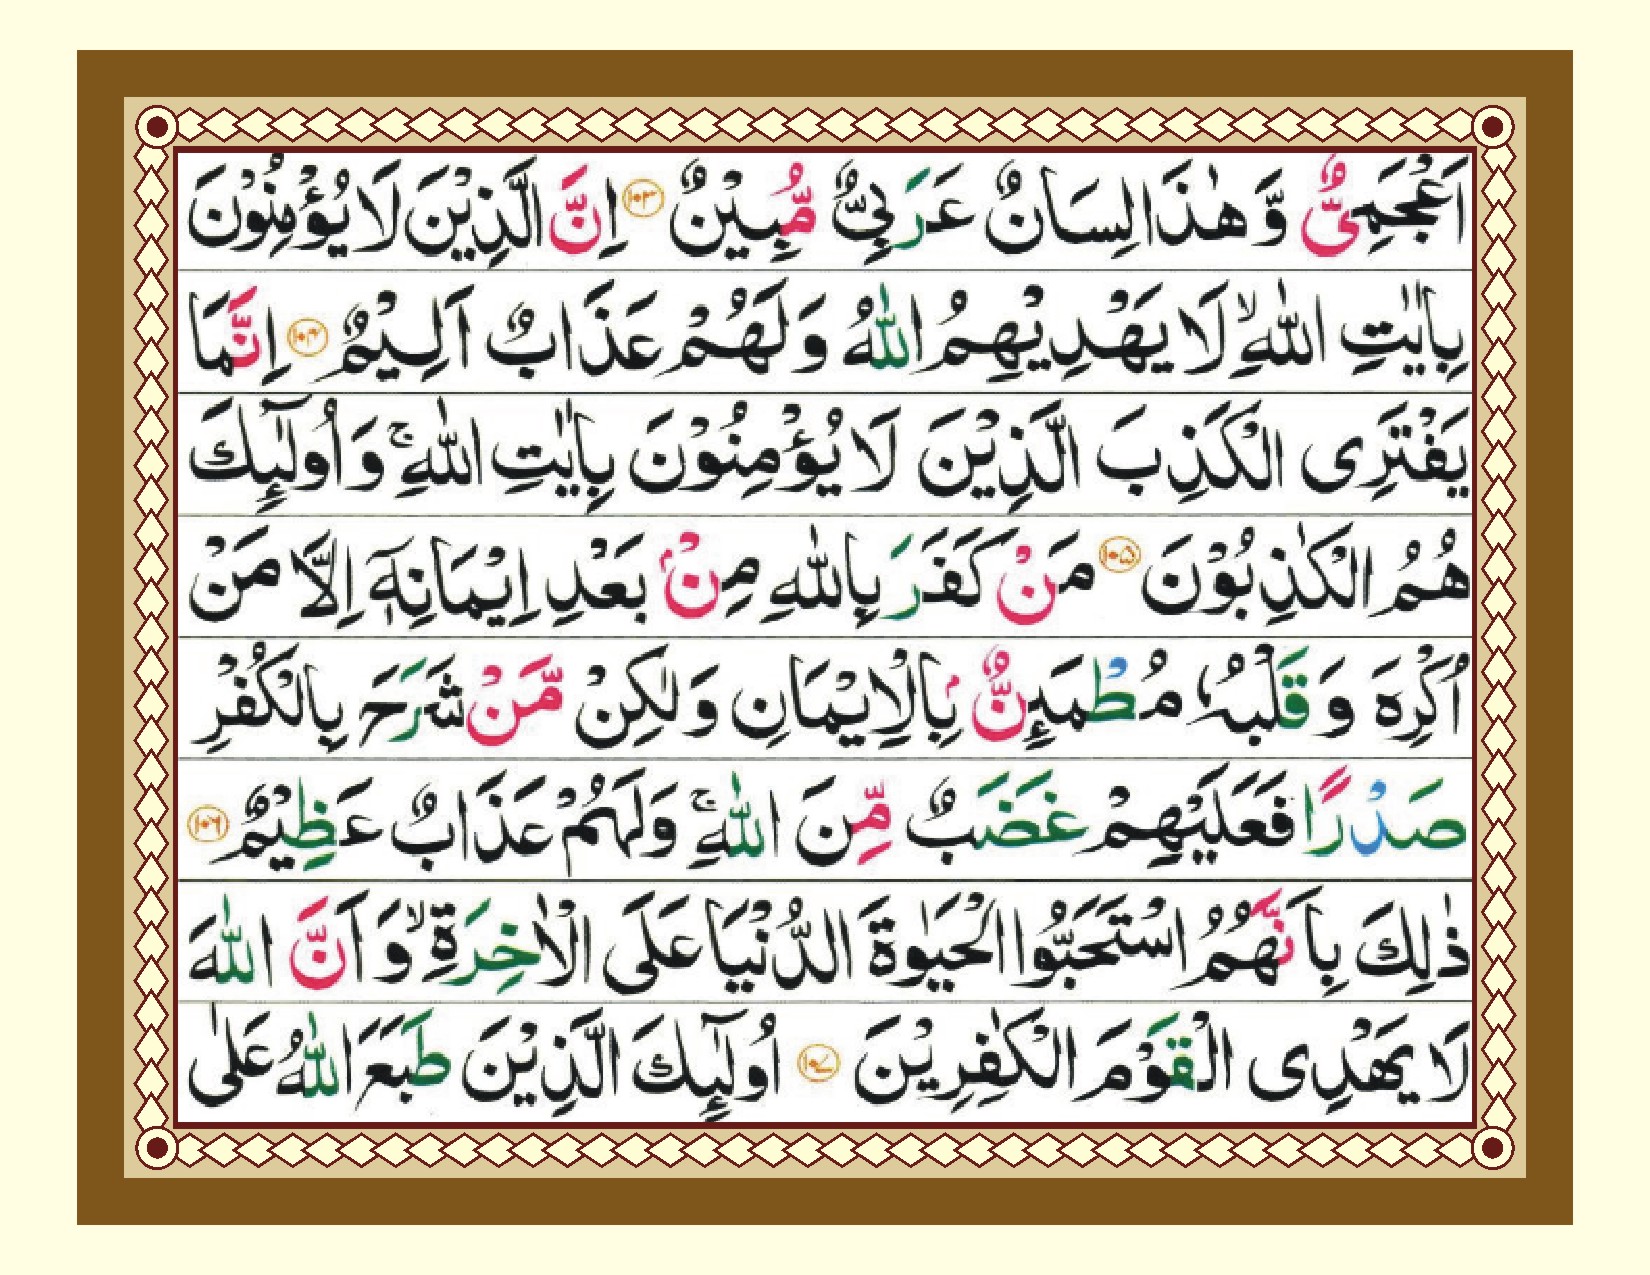 اَعْجَمِىٌّ وَّ هٰذَا لِسَانٌ عَرَبِىٌّ مُّبِيْنٌ ۝۱۰۳ اِنَّ الَّذِيْنَ لَا يُؤْمِنُوْنَ
بِاٰيٰتِ اللّٰهِ ۙ لَا يَهْدِيْهِمُ اللّٰهُ وَ لَهُمْ عَذَابٌ اَلِيْمٌ ۝۱۰۴ اِنَّمَا
يَفْتَرِى الْكَذِبَ الَّذِيْنَ لَا يُؤْمِنُوْنَ بِاٰيٰتِ اللّٰهِ ۚ وَ اُولٰٓئِكَ
هُمُ الْكٰذِبُوْنَ ۝۱۰۵ مَنْ كَفَرَ بِاللّٰهِ مِنْۢ بَعْدِ اِيْمَانِهٖۤ اِلَّا مَنْ
اُكْرِهَ وَ قَلْبُهٗ مُطْمَئِنٌّۢ بِالْاِيْمَانِ وَلٰكِنْ مَّنْ شَرَحَ بِالْكُفْرِ
صَدْرًا فَعَلَيْهِمْ غَضَبٌ مِّنَ اللّٰهِ ۚ وَلَهُمْ عَذَابٌ عَظِيْمٌ ۝۱۰۶
ذٰلِكَ بِاَنَّهُمُ اسْتَحَبُّوا الْحَيٰوةَ الدُّنْيَا عَلَى الْاٰخِرَةِ ۙ وَ اَنَّ اللّٰهَ
لَا يَهْدِى الْقَوْمَ الْكٰفِرِيْنَ ۝۱۰۷ اُولٰٓئِكَ الَّذِيْنَ طَبَعَ اللّٰهُ عَلٰى